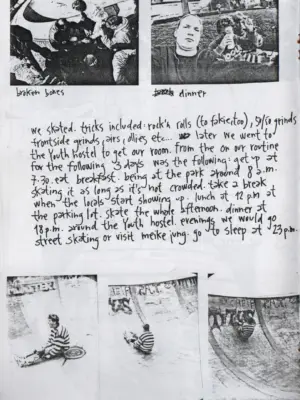 broken bones
dinner
we skated. tricks included rock'n rolls (to fakie, too), 50/50 grinds
frontside grinds, airs, ollies etc... later we went to
the Youth hostel to get our room. from the on our routine
for the following 3 days was the following: get up at
7.30. eat breakfast. being at the park around 8 a.m.
skating it as long as it's not crowded. take a break
when the locals start showing up. lunch at 12 p.m at
the parking lot. skate the whole afternoon. dinner at
18 p.m. around the Youth hostel. evenings we would go
street skating or visit meike jung. go to sleep at 23 p.m.